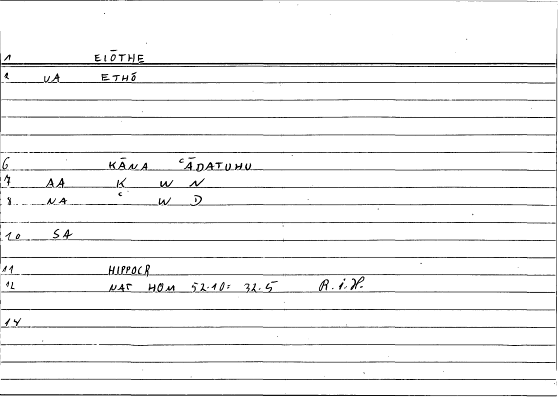 1 EIŌTHE
2 VA ETHŌ
6 KĀNA ʿĀDATUHU
7 AA K W N
8 NA ʿ W D
10 SA
11 HIPPOCR
12 NAT HOM 52.10= 32.5 R.i.H.
14